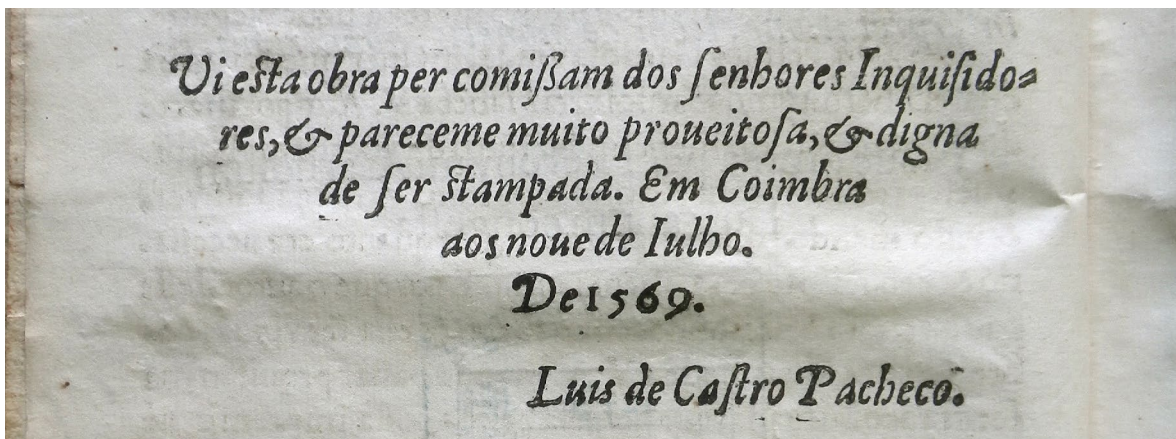 Vi esta obra per comißam dos ſenhores Inquiſido-
res, & pareceme muito proueitoſa, & digna
de ſer stampada. Em Coimbra
aos noue de Iulho.
De 1569.
Luis de Caſtro Pacheco.